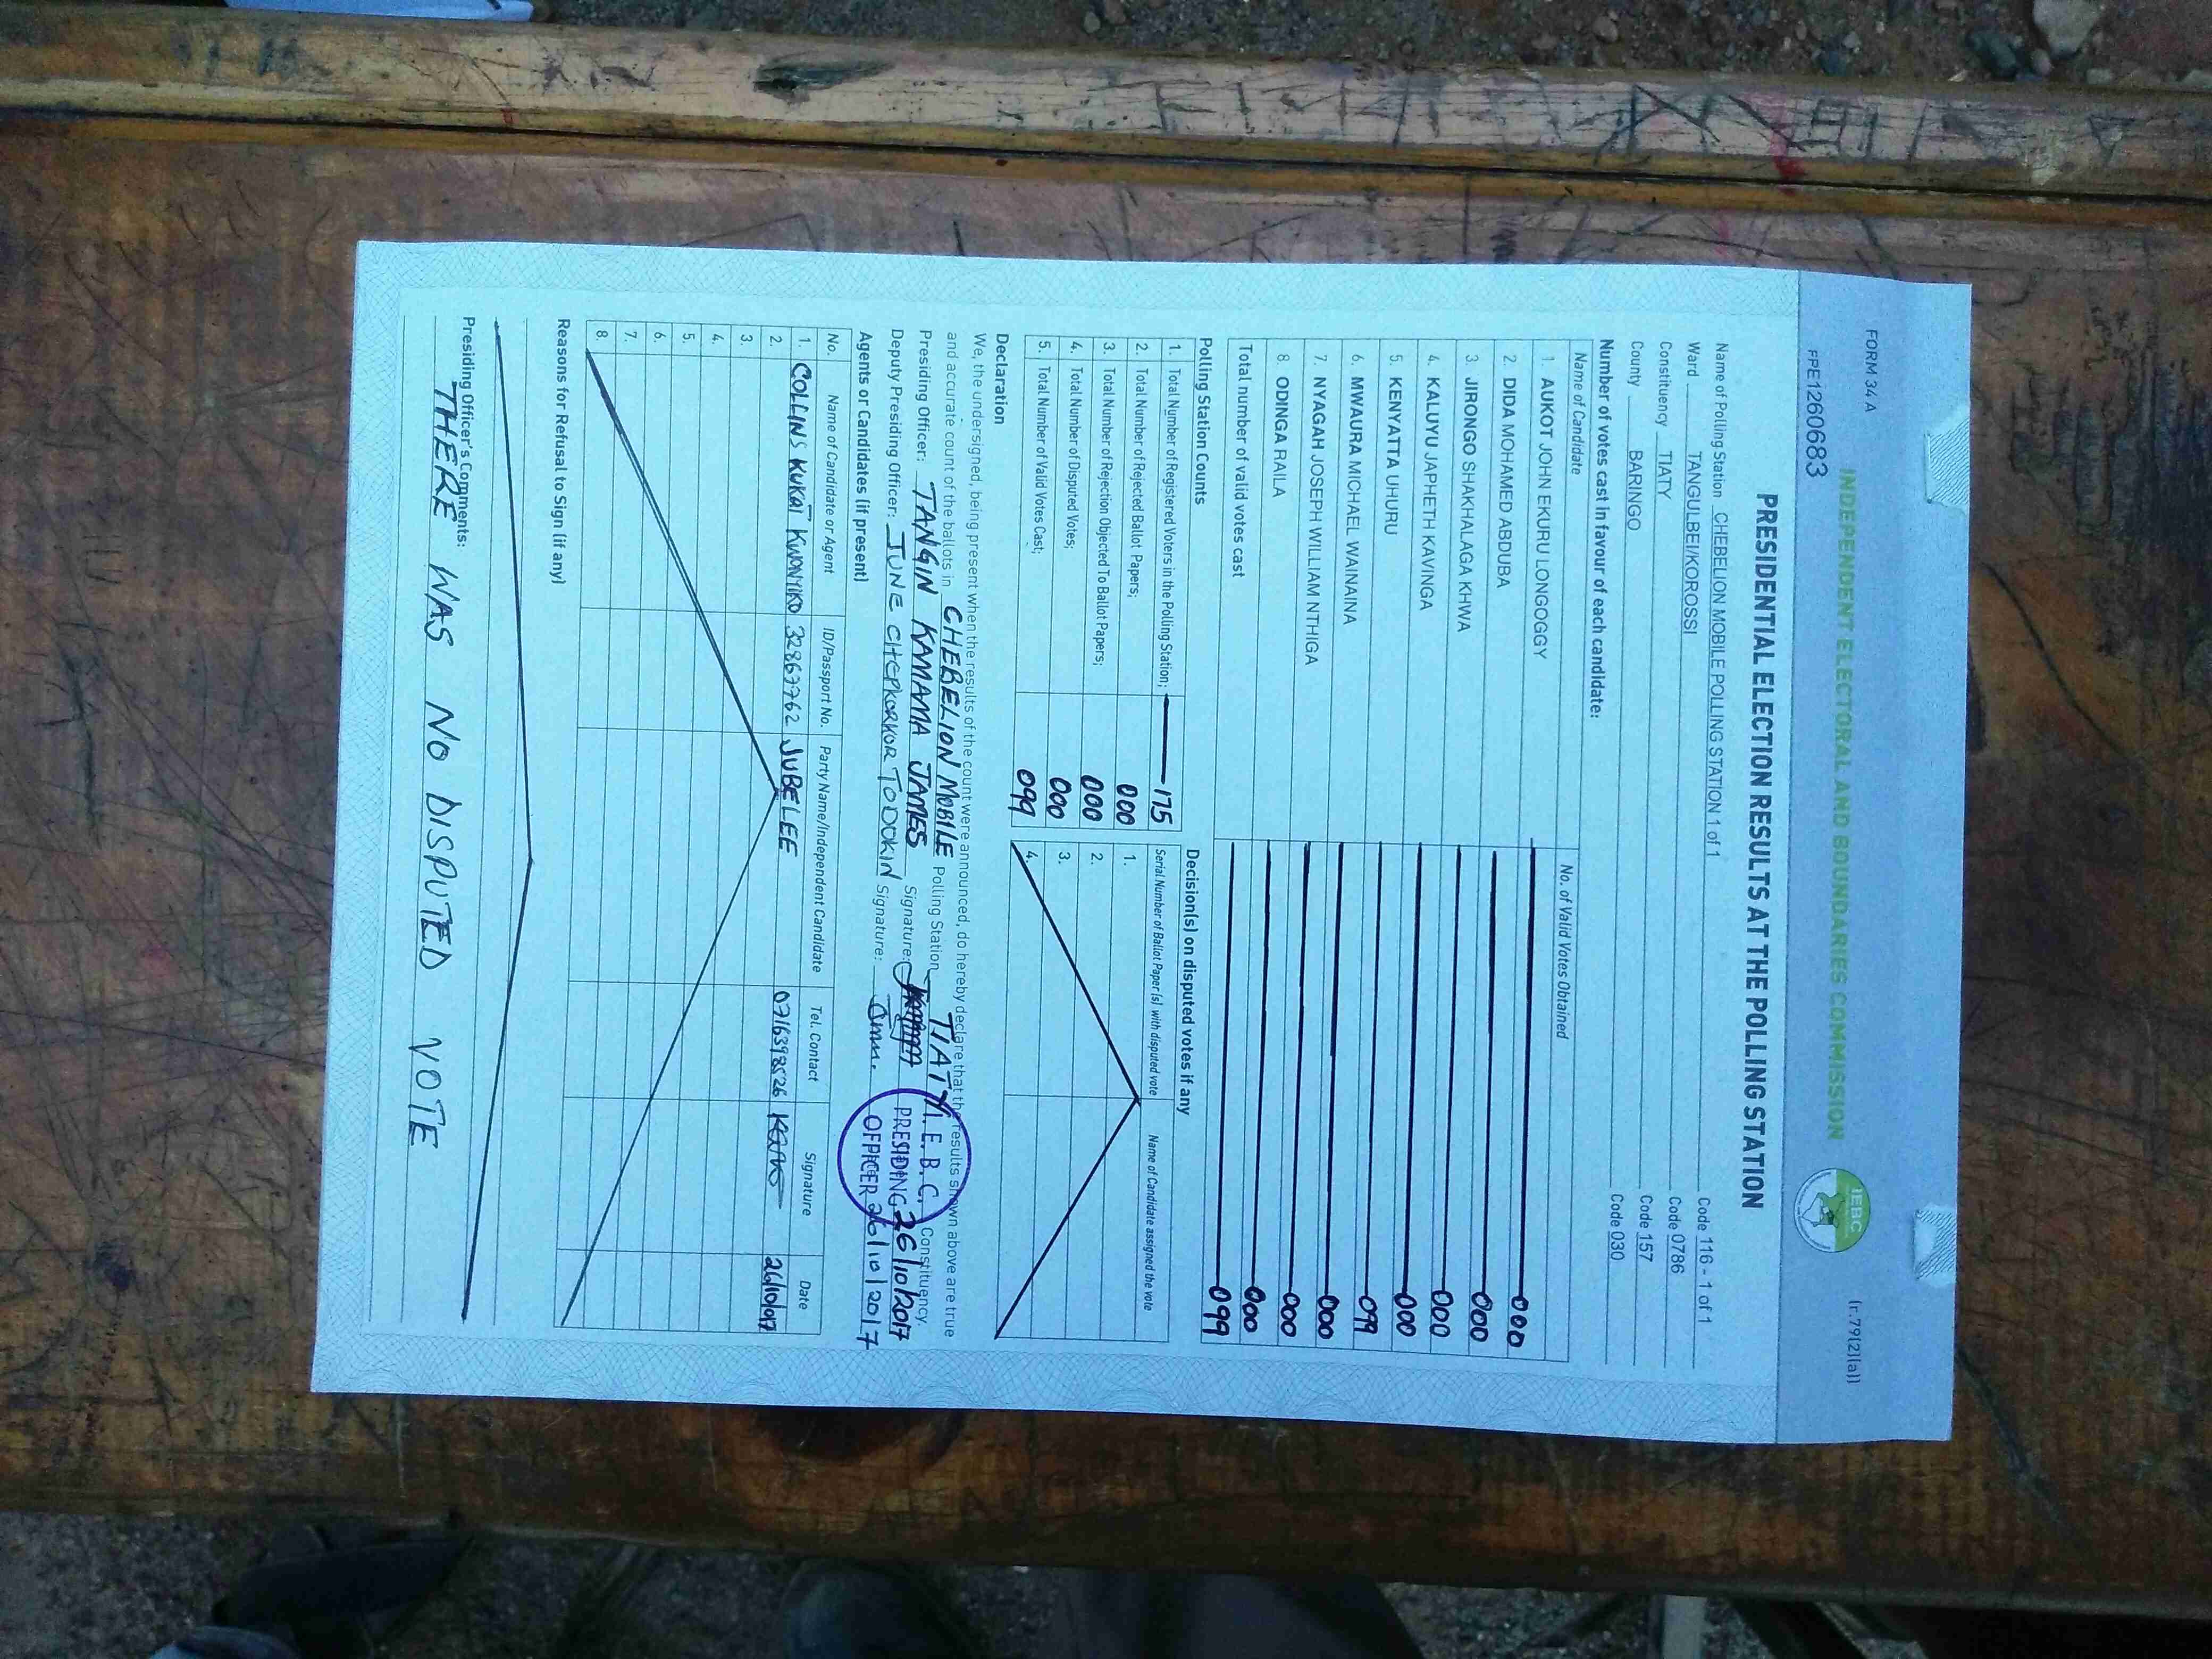 FORM 34 A
(r.79(2)(a))
PPE1260683
INDEPENDENT ELECTORAL AND BOUNDARIES COMMISSION
IEBC
PRESIDENTIAL ELECTION RESULTS AT THE POLLING STATION
Name of Polling Station CHEBELION MOBILE POLLING STATION 1 of 1 Code 116 - 1 of 1
Ward TANGULBEI/KOROSSI Code 0786
Constituency TIATY Code 157
County BARINGO Code 030
Number of votes cast in favour of each candidate:
Name of Candidate No. of Valid Votes Obtained
1. AUKOT JOHN EKURU LONGOGGY 000
2. DIDA MOHAMED ABDUBA 000
3. JIRONGO SHAKHALAGA KHWA 000
4. KALUYU JAPHETH KAVINGA 000
5. KENYATTA UHURU 099
6. MWAURA MICHAEL WAINAINA 000
7. NYAGAH JOSEPH WILLIAM NTHIGA 000
8. ODINGA RAILA 000
Total number of valid votes cast 099
Polling Station Counts
1. Total Number of Registered Voters in the Polling Station; 175
2. Total Number of Rejected Ballot Papers; 000
3. Total Number of Rejection Objected To Ballot Papers; 000
4. Total Number of Disputed Votes; 000
5. Total Number of Valid Votes Cast; 099
Decision(s) on disputed votes if any
Serial Number of Ballot Paper (s) with disputed vote Name of Candidate assigned the vote
1.
2.
3.
4.
Declaration
We, the undersigned, being present when the results of the count were announced, do hereby declare that the results shown above are true
and accurate count of the ballots in CHEBELION MOBILE Polling Station TIATY Constituency.
Presiding Officer: TANGIN KAMAMA JAMES Signature: 26/10/2017
Deputy Presiding Officer: JUNE CHEPKORKOR TODOKIN Signature: 26/10/2017
I. E. B. C.
PRESIDING
OFFICER
Agents or Candidates (if present)
No. Name of Candidate or Agent ID/Passport No. Party Name/Independent Candidate Tel. Contact Signature Date
1. COLLINS KUKAT KWONYIKO 32867762 JUBELEE 0716398526 26/10/017
2.
3.
4.
5.
6.
7.
8.
Reasons for Refusal to Sign (if any)
Presiding Officer's Comments:
THERE WAS NO DISPUTED VOTE